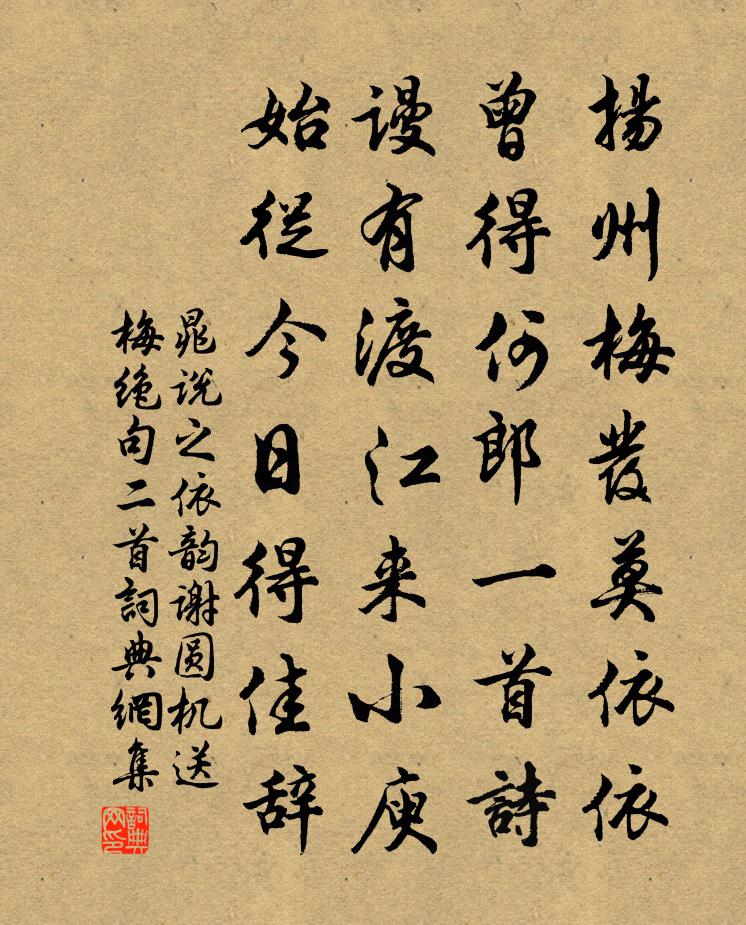 揚州梅發莫依依
曾得何郎一首詩
謾有渡江来小庾
始從今日得佳辞
晁说之依韵谢圆机送
梅絶句二首詞典網集
詞典网印